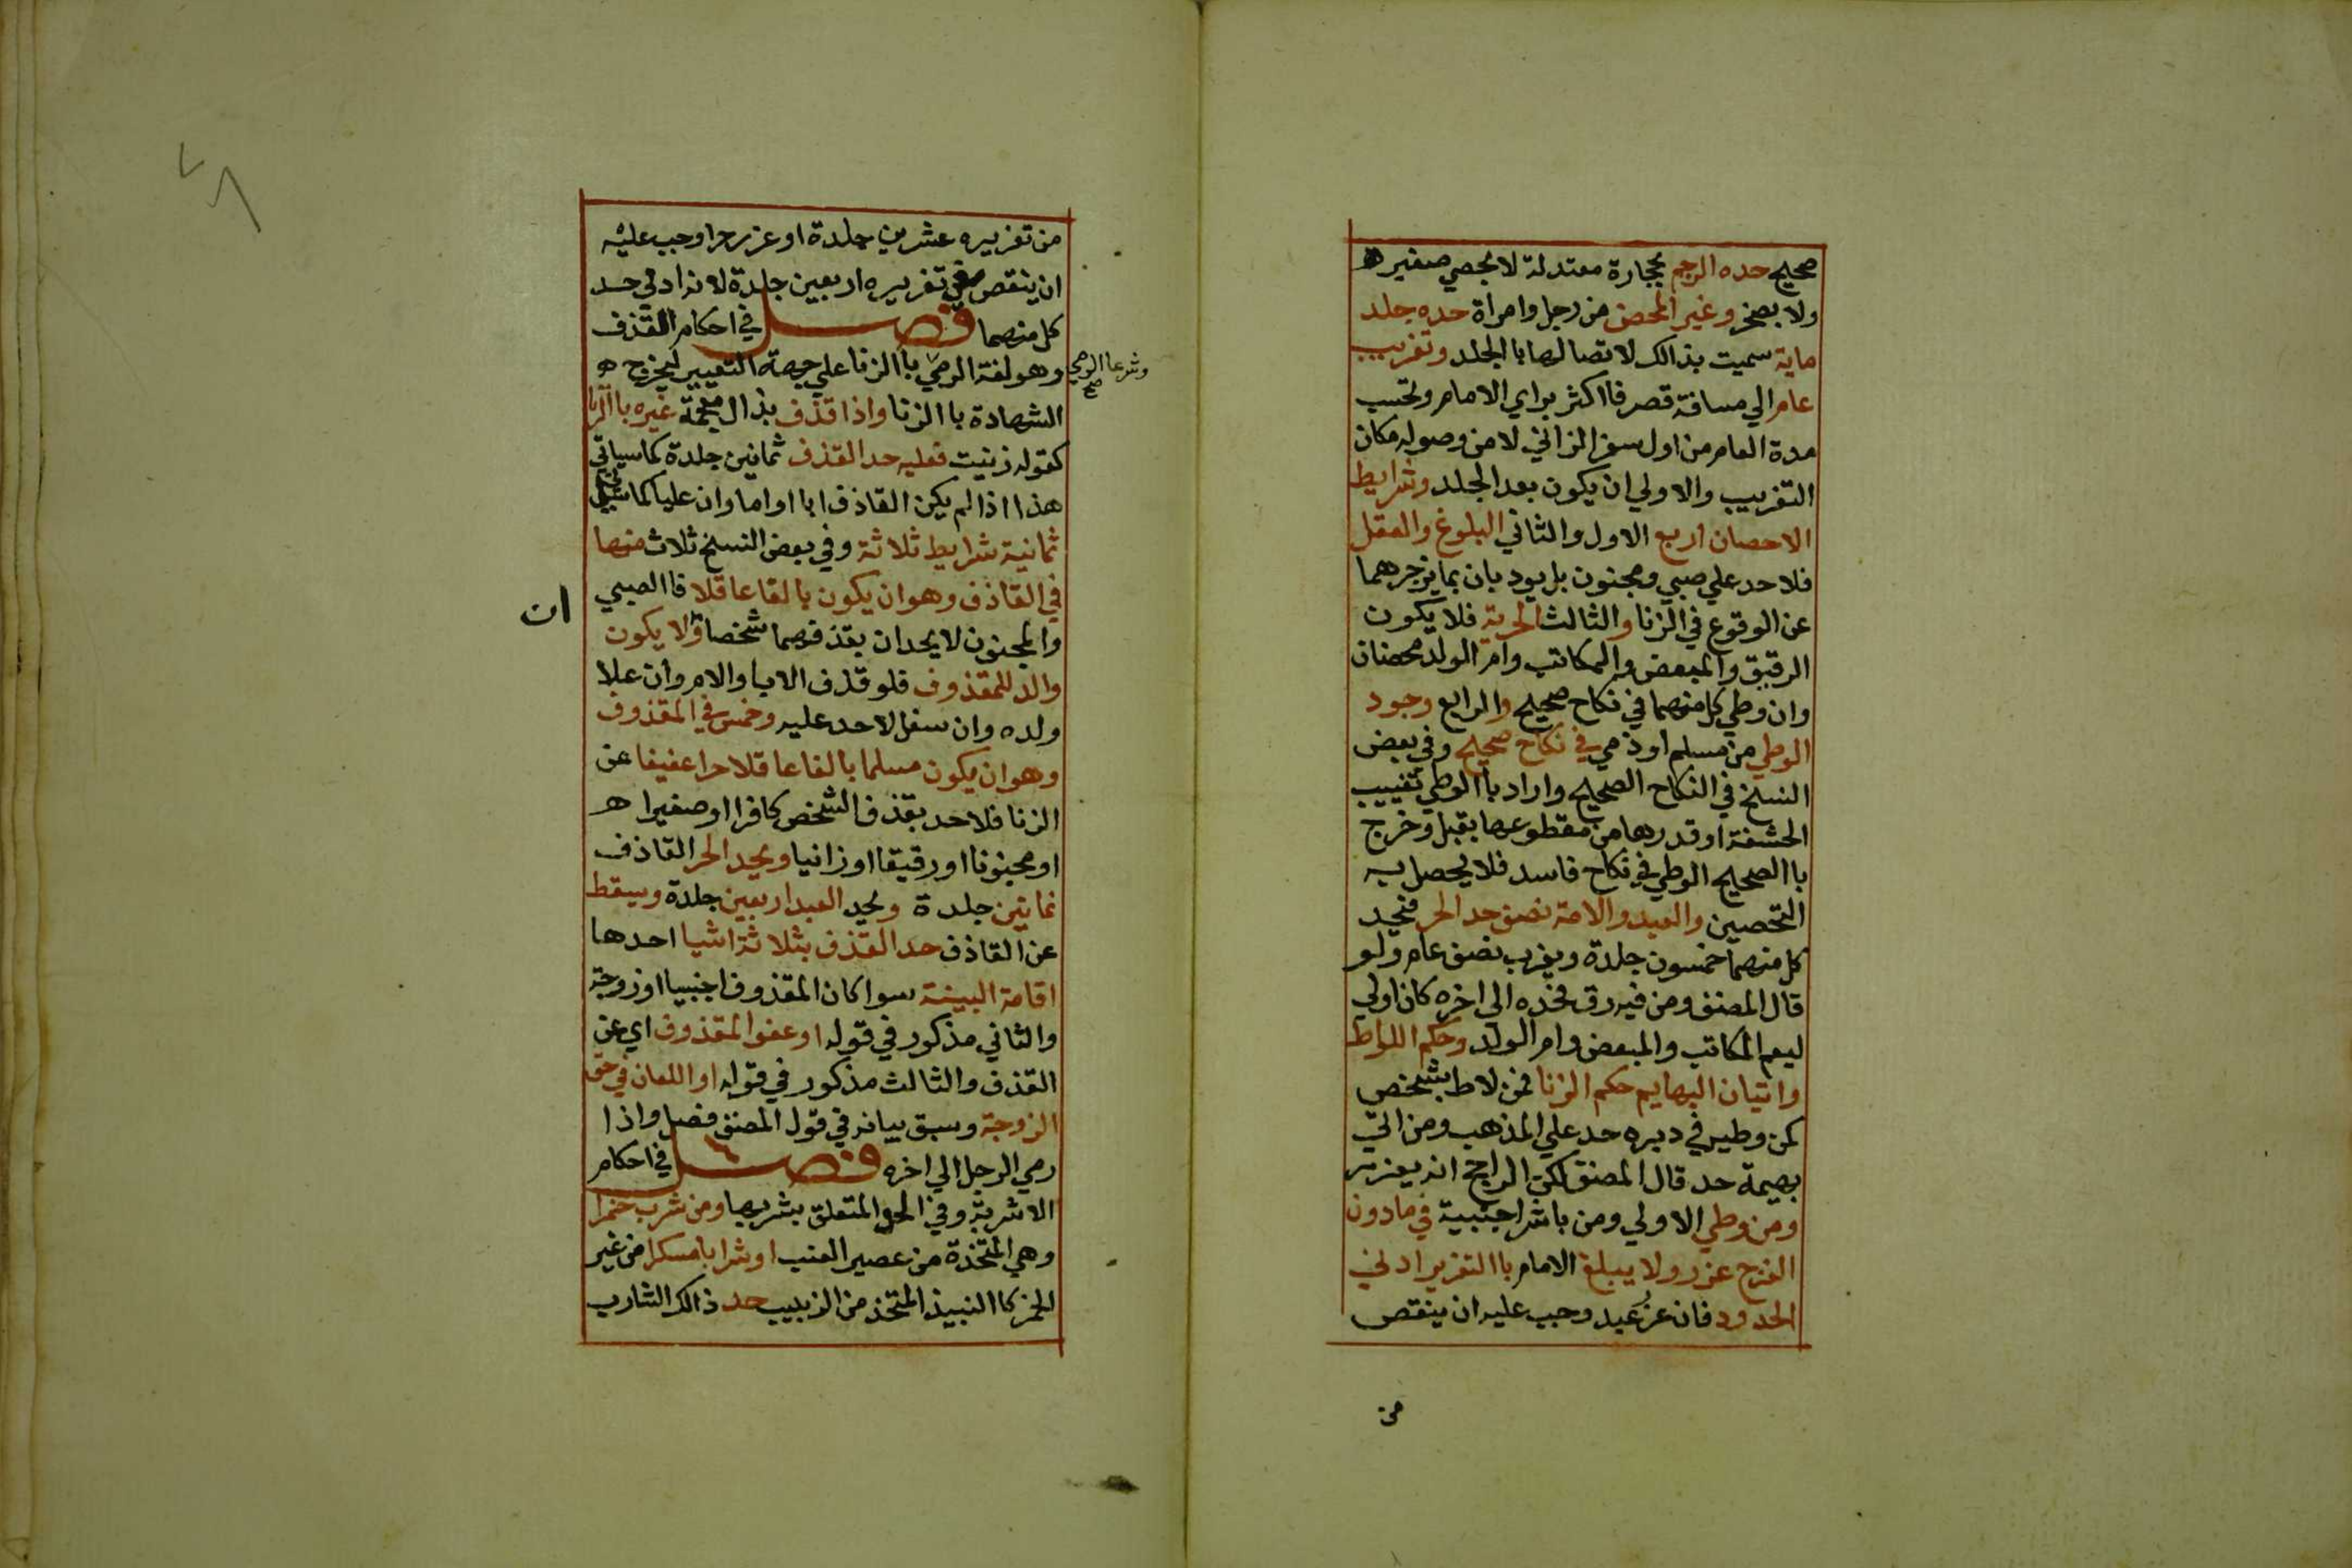 صحيح حده الرجم بحجارة معتدلة لا بحصي صغيره
ولا بصخر وغير المحصن من رجل وامراة حده جلد
ماية سميت بذالك لاتصالها باالجلد وتغريب
عام الي مسافة قصر فااكثر براي الامام وتحسب
مدة العام من اول سفر الزاني لا من وصوله مكان
التغريب والاولي ان يكون بعد الجلد وشرايط
الاحصان اربع الاول والثاني البلوغ والعقل
فلا حد علي صبي ومجنون بل يودبان بما يزجرهما
عن الوقوع في الزنا والثالث الحرية فلا يكون
الرقيق والمبعض والمكاتب وام الولد محصنان
وان وطي كل منهما في نكاح صحيح والرابع وجود
الوطي من مسلم او ذمي في نكاح صحيح وفي بعض
النسخ في النكاح الصحيح واراد باالوطي تغييب
الحشفة او قدرها من مقطوعها بقبل وخرج
باالصحيح الوطي في نكاح فاسد فلا يحصل به
التحصين والعبد والامة نصف حد الحر فيحد
كل منهما خمسون جلدة ويغرب نصف عام ولو
قال المصنف ومن فيه رق فحده الي اخره كان اولي
ليعم المكاتب والمبعض وام الولد وحكم اللواط
واتيان البهايم حكم الزنا فمن لاط بشخص
كمن وطيه في دبره حد علي المذهب ومن اتي
بهيمة حد قال المصنف لكن الراجح انه يعزر
ومن وطي الاولي ومن باشر اجنبية في مادون
الفرج عزر ولا يبلغ الامام باالتعزير ادني
الحدود فان عزر عبد وجب عليه ان ينقص
من
من تعزيره عشرين جلدة او عزر حرا وجب عليه
ان ينقص في تعزيره اربعين جلدة لانه ادني حد
كل منهما فصل في احكام القذف
وهو لغة الرمي باالزنا علي جهة التعيير ليخرج
وشرعا الرمي
صح
الشهادة باالزنا واذا قذف بذال معجمة غيره باالزنا
كقوله زنيت فعليه حد القذف ثمانين جلدة كما سياتي
هذا اذا لم يكن القاذف ابا او اما وان عليا كما سياتي
ثمانية شرايط ثلاثة وفي بعض النسخ ثلاث منها
في القاذف وهو ان يكون بالغا عاقلا فاالصبي
ان
والمجنون لا يحدان بقذفهما شخصا ولا يكون
والد للمقذوف فلو قذف الاب والام وان علا
ولده وان سفل لا حد عليه وخمس في المقذوف
وهو ان يكون مسلما بالغا عاقلا حرا عفيفا عن
الزنا فلا حد بقذف الشخص كافرا او صغيرا
او مجنونا او رقيقا او زانيا ويحد الحر القاذف
ثمانين جلدة ويحد العبد اربعين جلدة ويسقط
عن القاذف حد القذف بثلاثة اشيا احدها
اقامة البينة سوا كان المقذوف اجنبيا او زوجة
والثاني مذكور في قوله او عفو المقذوف اي عن
القذف والثالث مذكور في قوله او اللعان في حق
الزوجة وسبق بيانه في قول المصنف فصل واذا
رمي الرجل الي اخره فصل في احكام
الاشربة وفي الحد المتعلق بشربها ومن شرب خمرا
وهي المتخذة من عصير العنب او شرابا مسكرا من غير
الخمر كاالنبيذ المتخذ من الزبيب حد ذالك الشارب